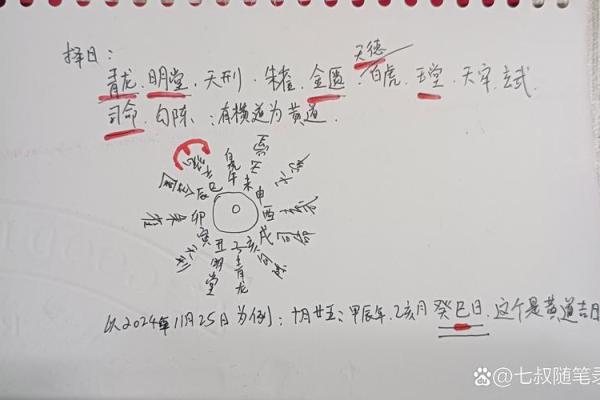 择日:
天德
青龙、明堂、天刑、朱雀、金匮、白虎、玉堂、天牢、玄武
司命、勾陈、:有横道为黄道.
巳 午 未 申
辰 酉
卯 戌
寅 丑 子 亥
白虎
玉堂
明堂
青龙
以2024年11月25日为例:十月廿五:甲辰年、乙亥月 癸巳日、这个是黄道吉日
@七叔随笔录